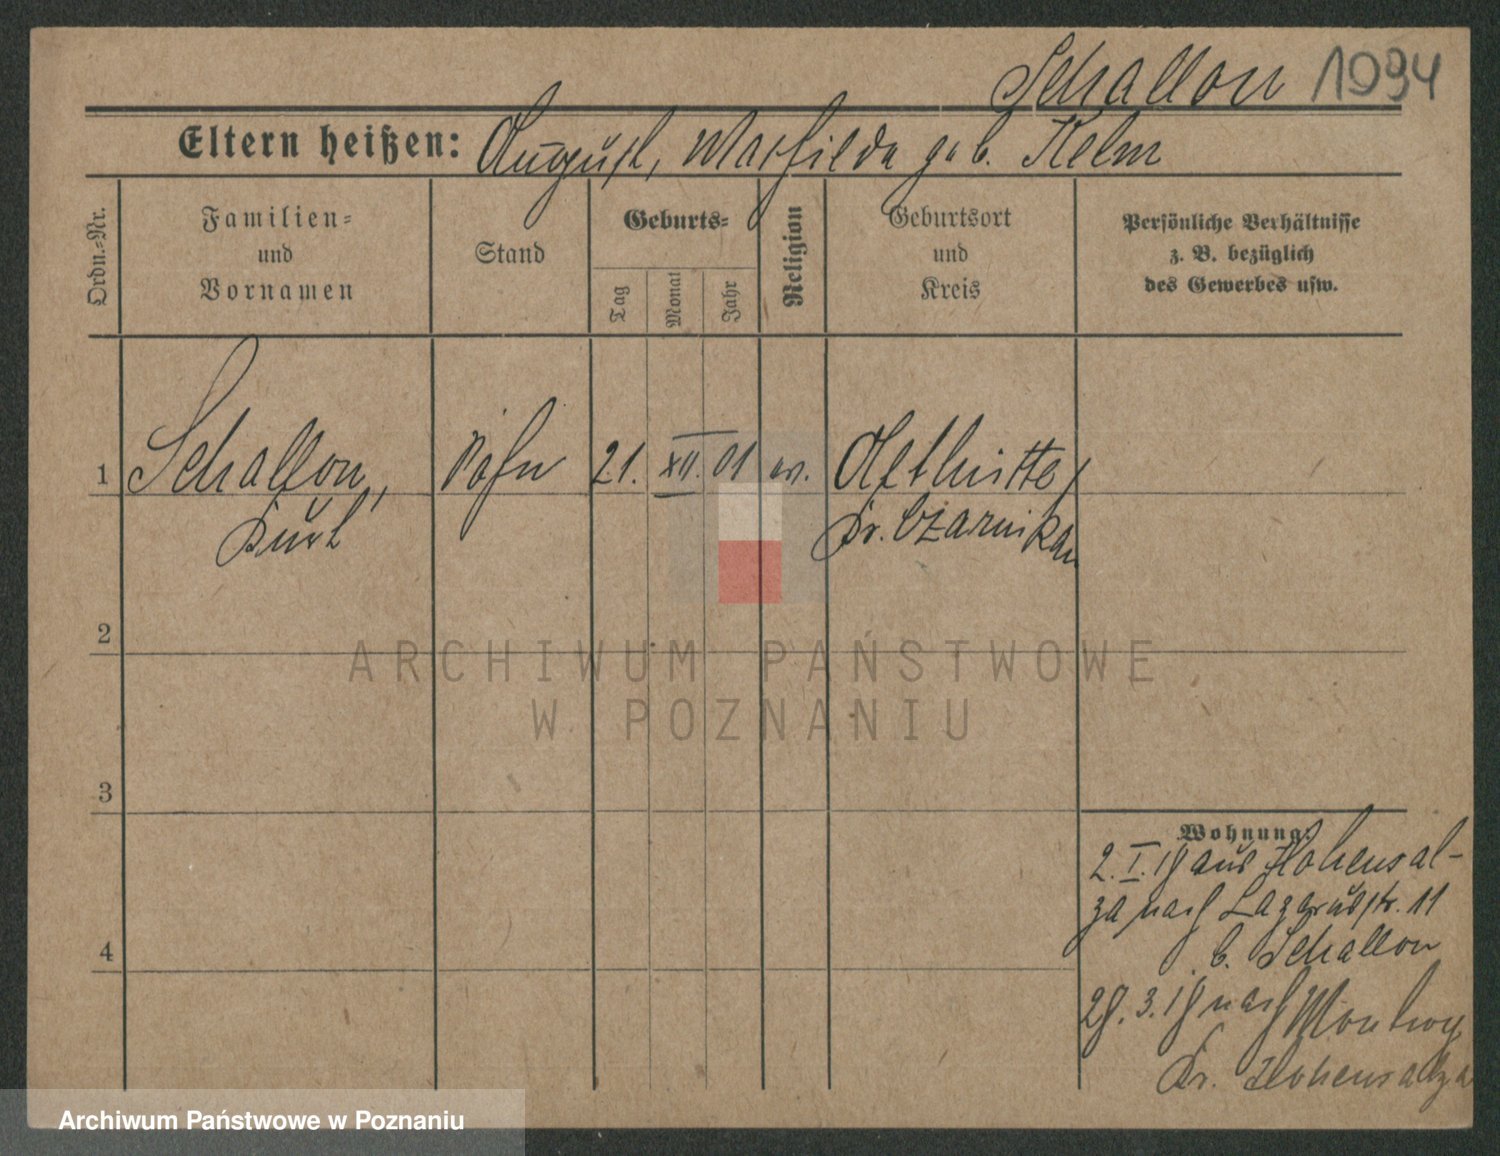 Schallon 1994
Eltern heißen: August, Mathilde geb. Kelm
Ordn.-Nr.
Familien-
und
Vornamen
Stand
Geburts-
Tag
Monat
Jahr
Religion
Geburtsort
und
Kreis
Persönliche Verhältnisse
z. B. bezüglich
des Gewerbes usw.
1 Schallon, Sohn 21. XII. 01 ev. Althütte,
Kurt Kr. Czarnikau
2
3
4
Wohnung:
2. I. 19 aus Hohensal-
za nach Lazarusstr. 11
b. Schallon
29. 3. 19 nach Montwy
Kr. Hohensalza
ARCHIWUM PAŃSTWOWE
W POZNANIU
Archiwum Państwowe w Poznaniu